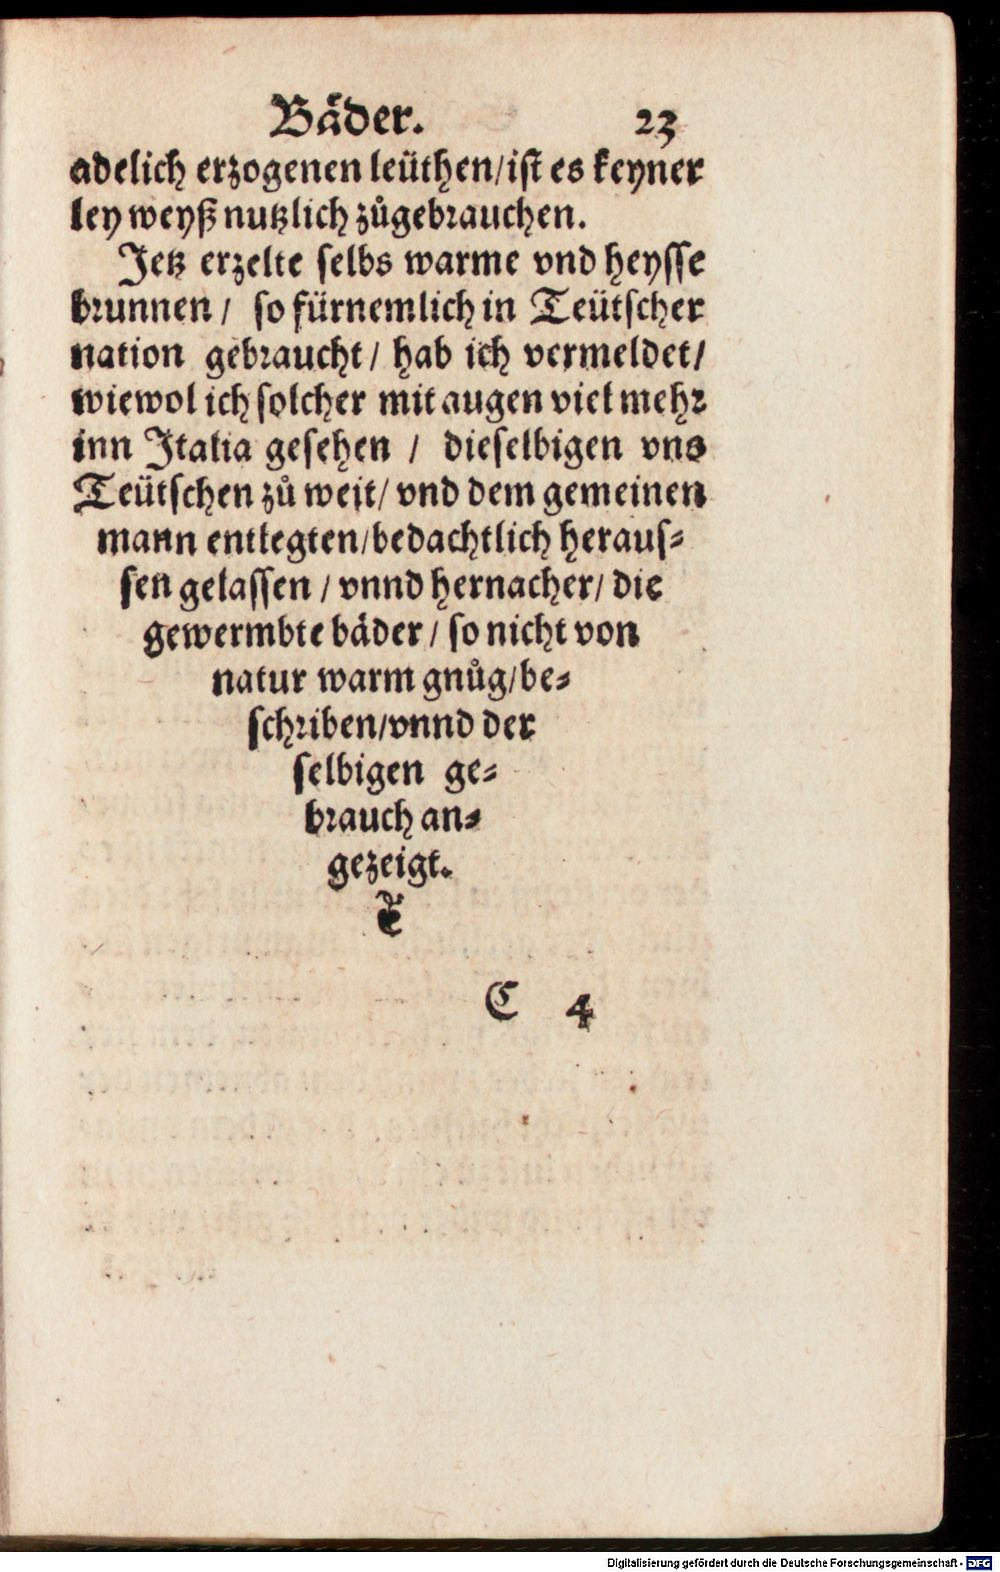 Bäder. 23
adelich erzogenen leüthen/ist es keyner
ley weyß nutzlich zůgebrauchen.
Jetz erzelte selbs warme vnd heysse
brunnen/ so fürnemlich in Teütscher
nation gebraucht/ hab ich vermeldet/
wiewol ich solcher mit augen viel mehr
inn Italia gesehen / dieselbigen vns
Teütschen zů weit/ vnd dem gemeinen
mann entlegten/bedachtlich heraus-
sen gelassen / vnnd hernacher/ die
gewermbte bäder / so nicht von
natur warm gnůg/be-
schriben/vnnd der
selbigen ge-
brauch an-
gezeigt.
C 4
Digitalisierung gefördert durch die Deutsche Forschungsgemeinschaft - DFG